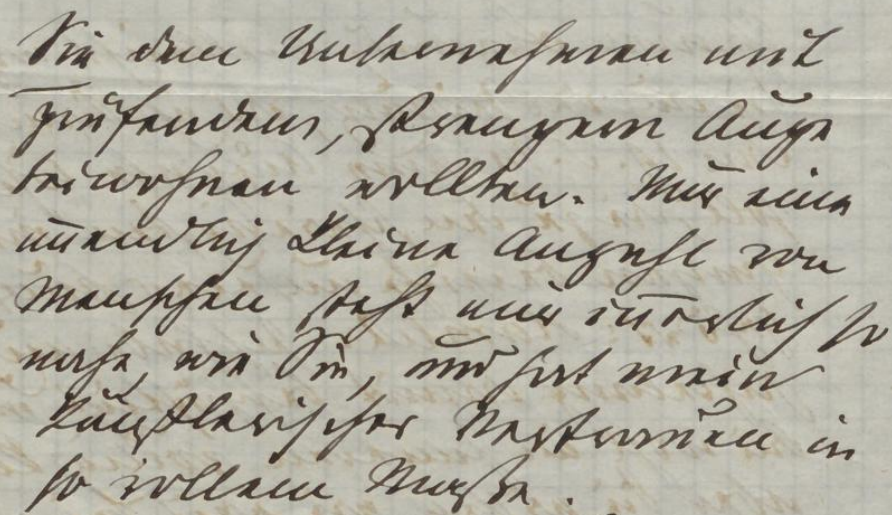 Sie dem Unternehmen mit
prüfendem, strengem Auge
beiwohnen wollten. Nur eine
unendlich kleine Anzahl von
Menschen steht mir innerlich so
nahe, wie Sie, und hat mein
künstlerisches Vertrauen in
so vollem Maße.